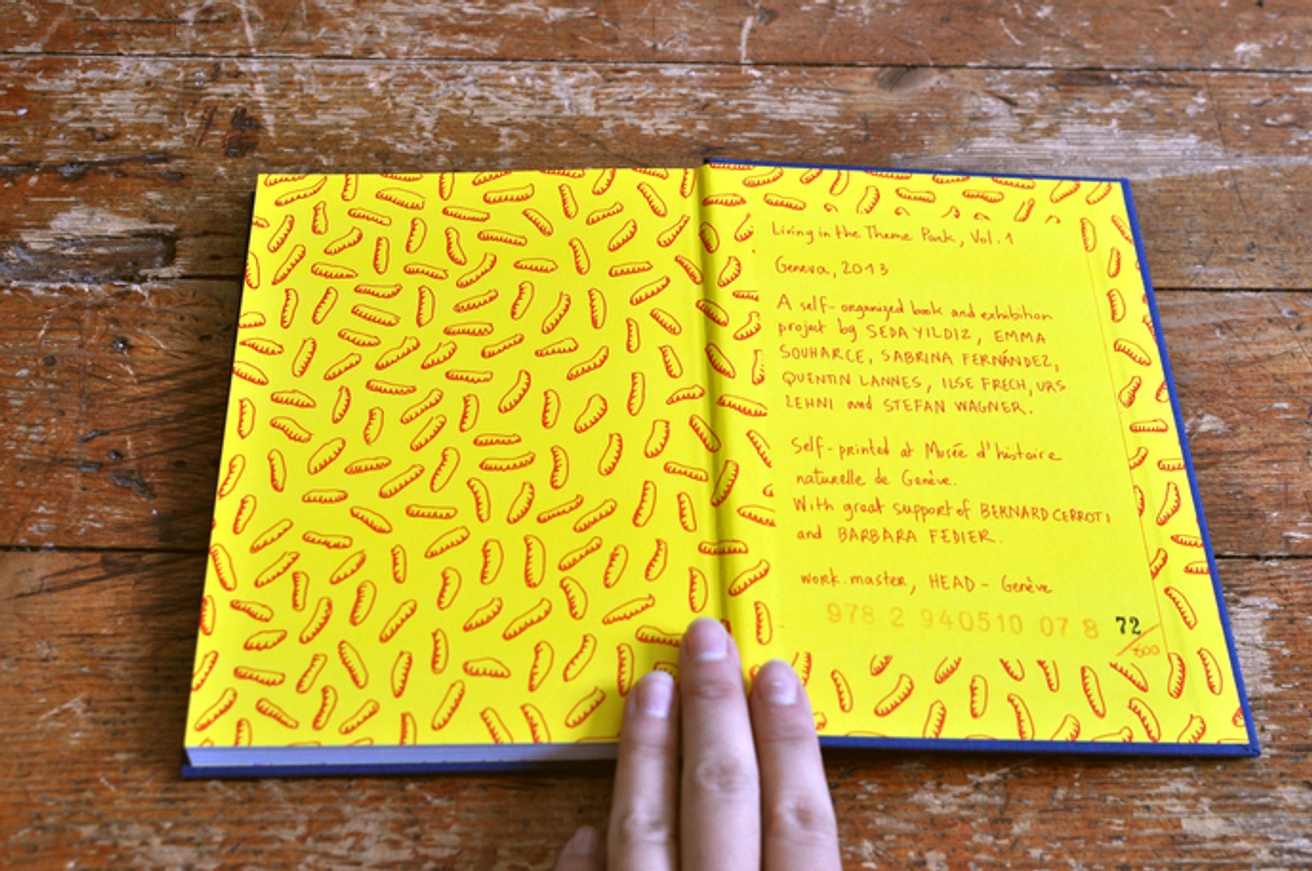 Living in the Theme Park, Vol. 1
Geneva, 2013
A self-organized book and exhibition
project by SEDA YILDIZ, EMMA
SOUHARCE, SABRINA FERNÁNDEZ,
QUENTIN LANNES, ILSE FRECH, URS
LEHNI and STEFAN WAGNER.
Self-printed at Musée d'histoire
naturelle de Genève.
With great support of BERNARD CERROTI
and BARBARA FEDIER.
work.master, HEAD - Genève
978 2 940510 07 8
72/600